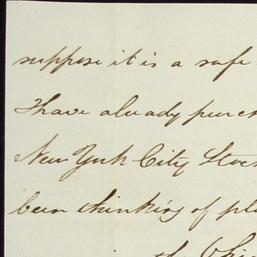 suppose it is a safe
I have already purc
New York City Stoc
been thinking of pl
of